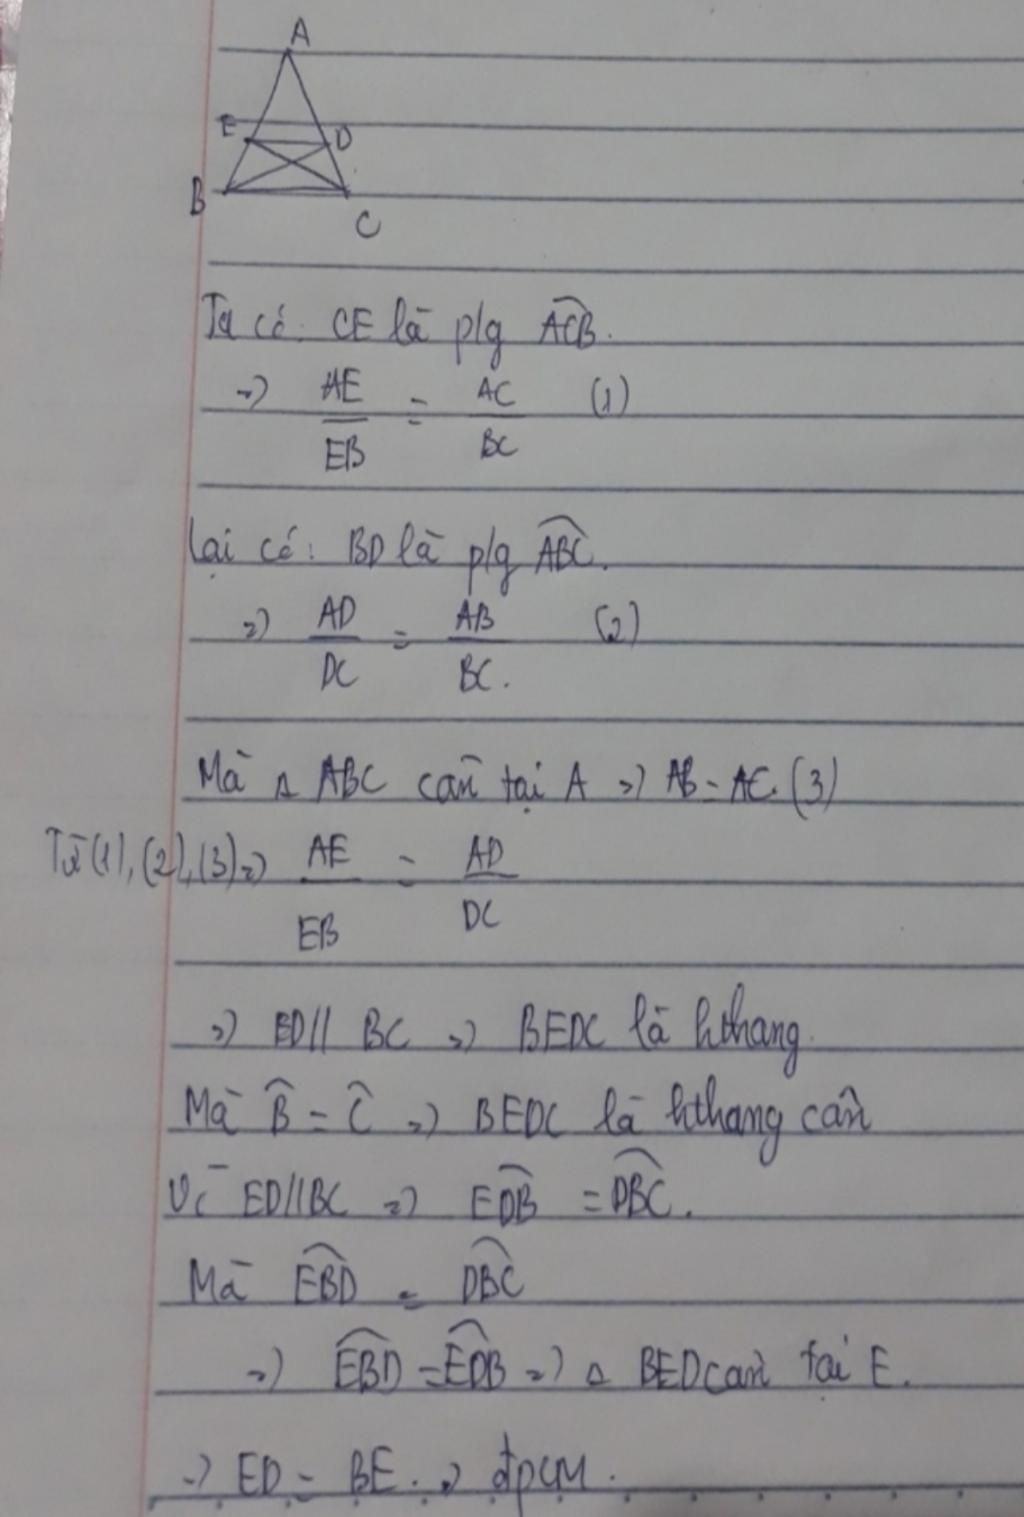 A
E D
B
C
Ta có: CE là p/g ACB.
=> AE/EB = AC/BC (1)
Lại có: BD là p/g ABC.
=> AD/DC = AB/BC. (2)
Mà Δ ABC cân tại A => AB = AC. (3)
Từ (1), (2), (3) => AE/EB = AD/DC
=> ED // BC => BEDC là hthang.
Mà B̂ = Ĉ => BEDC là hthang cân
Vì ED // BC => EDB = DBC.
Mà EBD = DBC
=> EBD = EDB => Δ BED cân tại E.
=> ED = BE. => đpcM.